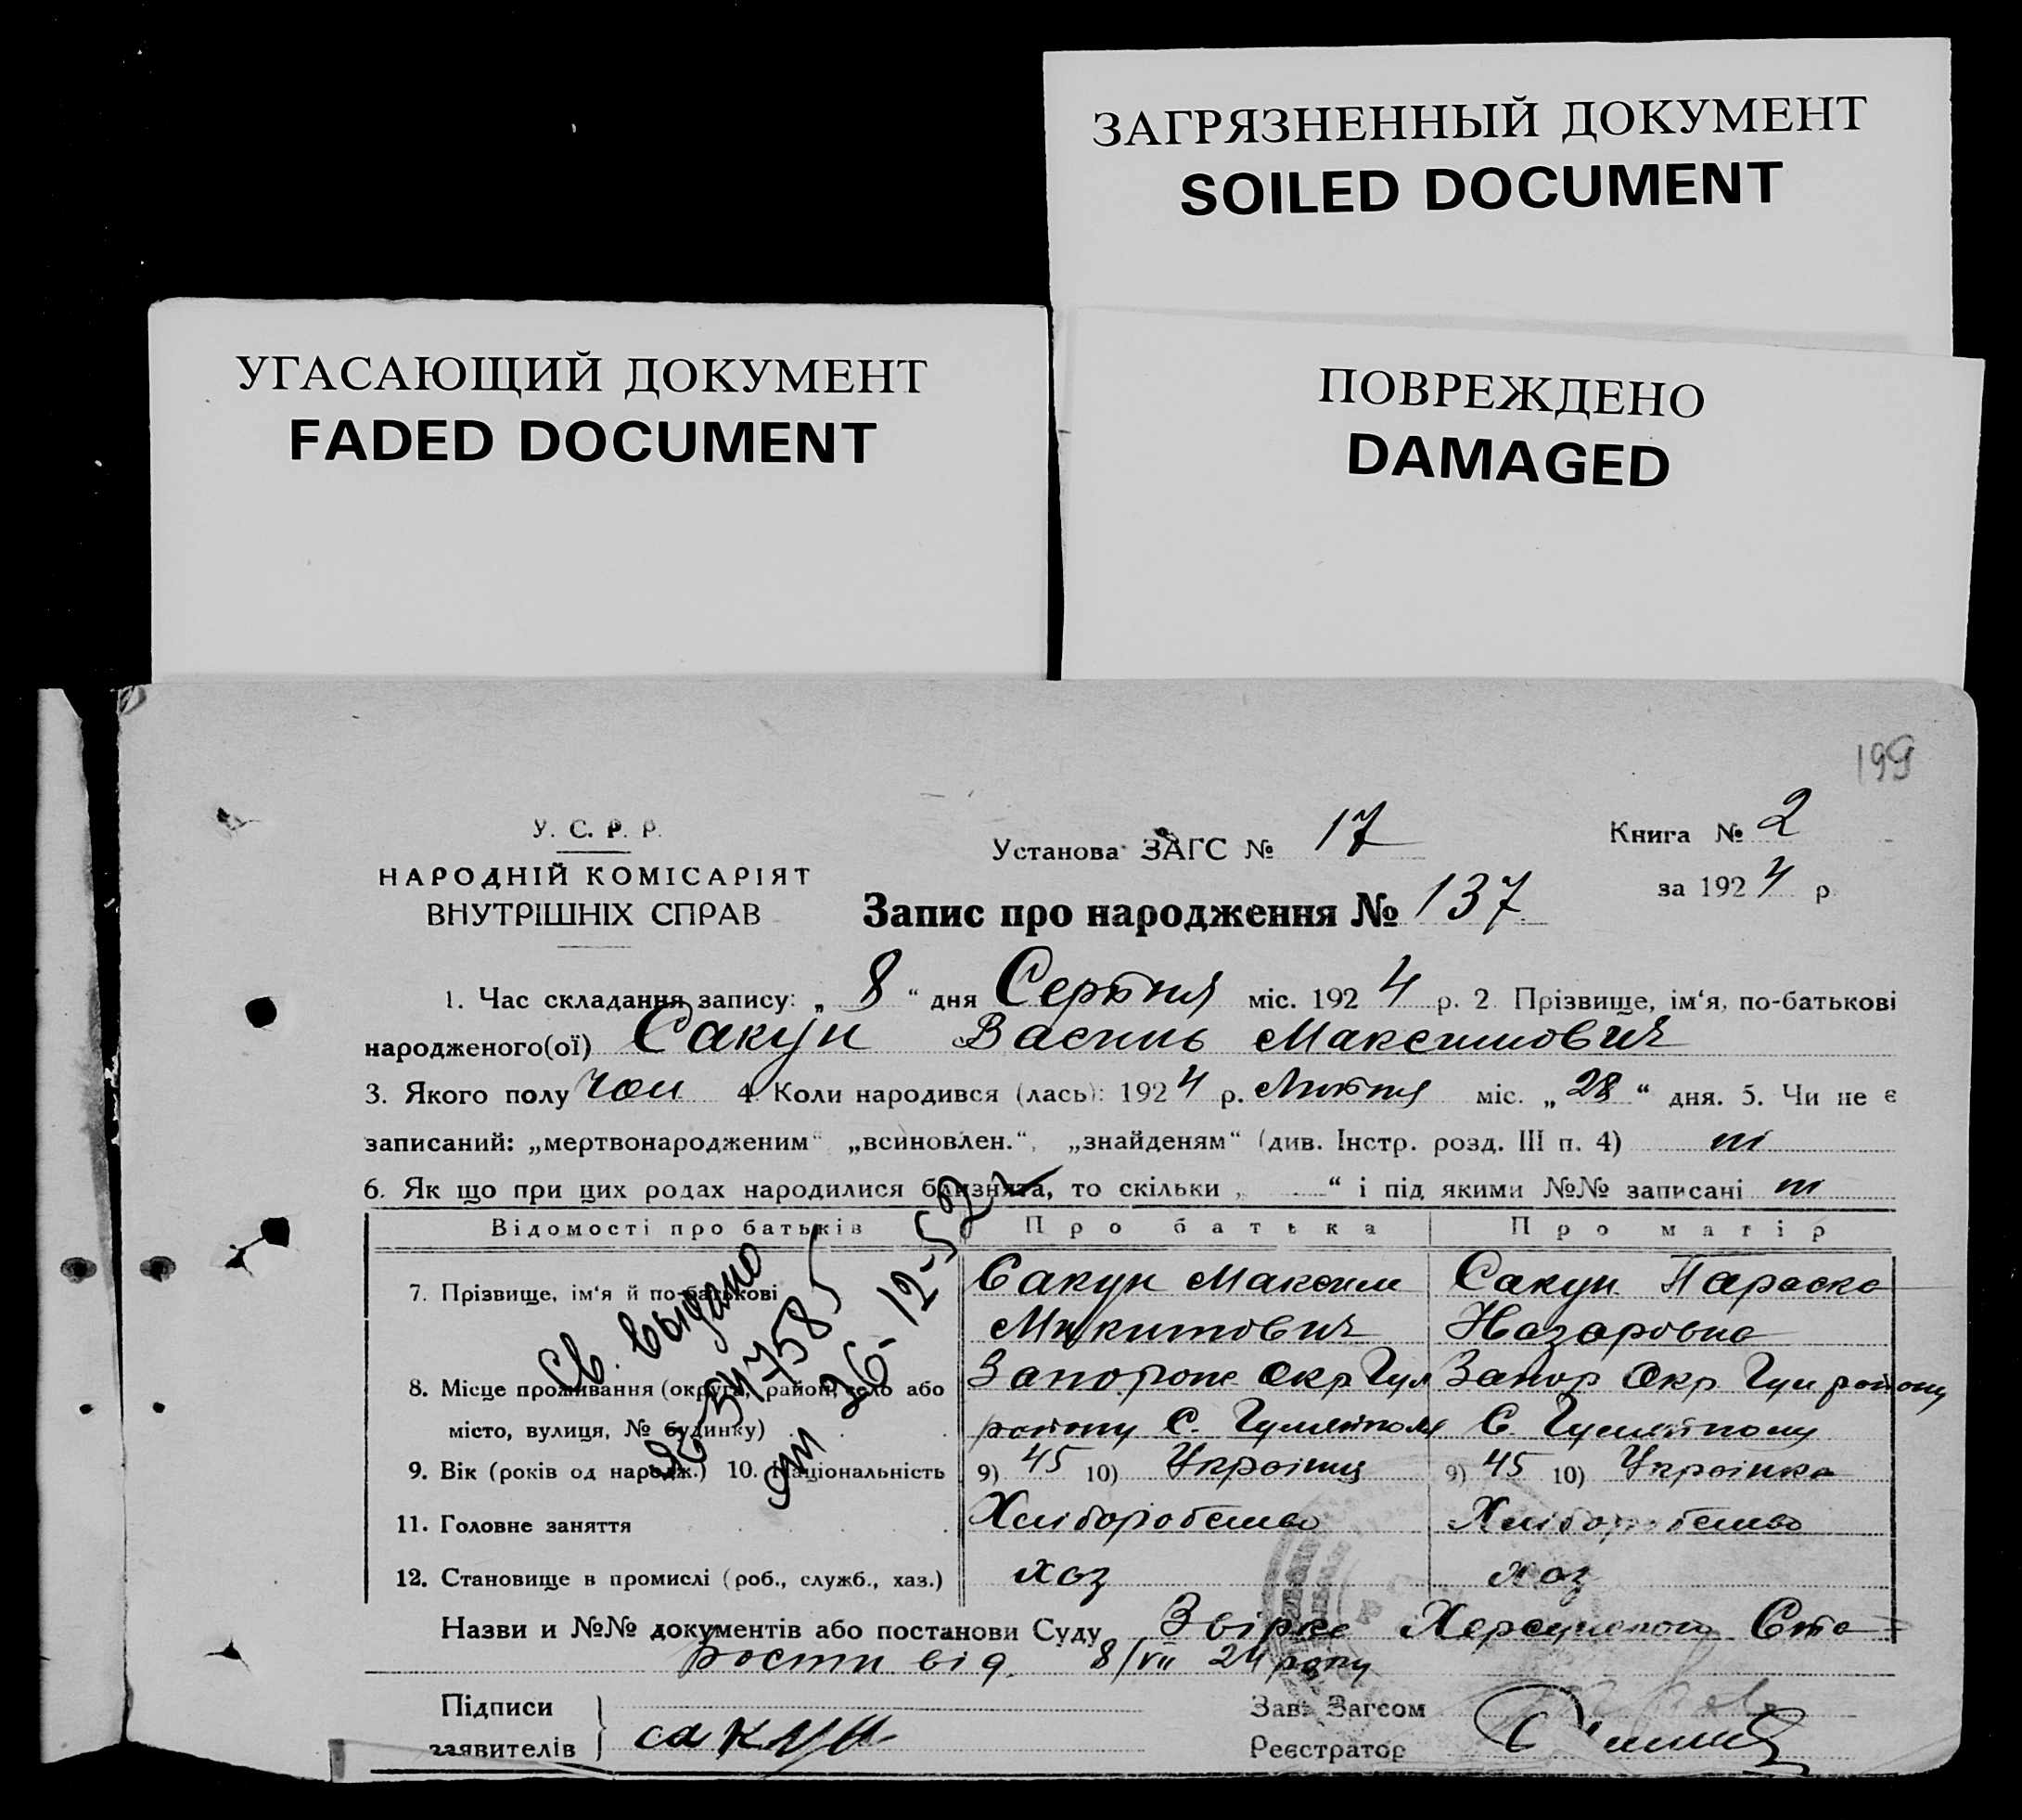 ЗАГРЯЗНЕННЫЙ ДОКУМЕНТ
SOILED DOCUMENT
УГАСАЮЩИЙ ДОКУМЕНТ
FADED DOCUMENT
ПОВРЕЖДЕНО
DAMAGED
199
У. С. Р. Р.
НАРОДНІЙ КОМІСАРІЯТ
ВНУТРІШНІХ СПРАВ
Установа ЗАГС № 17
Книга № 2
за 1924 р
Запис про народження № 137
1. Час складання запису: „ 8 “ дня Серпня міс. 1924 р. 2 Прізвище, ім‘я, по-батькові
народженого(ої) Сакун Василь Максимович
3. Якого полу чол 4. Коли народився (лась): 1924 р. Лютня міс. „ 28 “ дня. 5. Чи не є
записаний: „мертвонародженим“ „всиновлен.“, „знайденям“ (див. Інстр. розд. III п. 4) ні
6. Як що при цих родах народилися близнята, то скільки „ “ і під якими №№ записані ні
Відомості про батьків Про батька Про матір
7. Прізвище, ім‘я й по-батькові Сакун Максим Сакун Параска
Микитович Назаровна
8. Місце проживання (округа, район, село або Запорож Окр Гул Запор Окр Гул району
місто, вулиця, № будинку) району С. Гуляйполя С. Гуляйполу
9. Вік (років од народж.) 10. Національність 9) 45 10) Українц 9) 45 10) Українка
11. Головне заняття Хліборобство Хліборобство
12. Становище в промислі (роб., служб., хаз.) хоз хоз
Св. выдано
26-12-5
Назви и №№ документів або постанови Суду Ста-
рости від 8/VII 24 року
Підписи
заявителів сакун
Зав. Загсом
Реєстратор